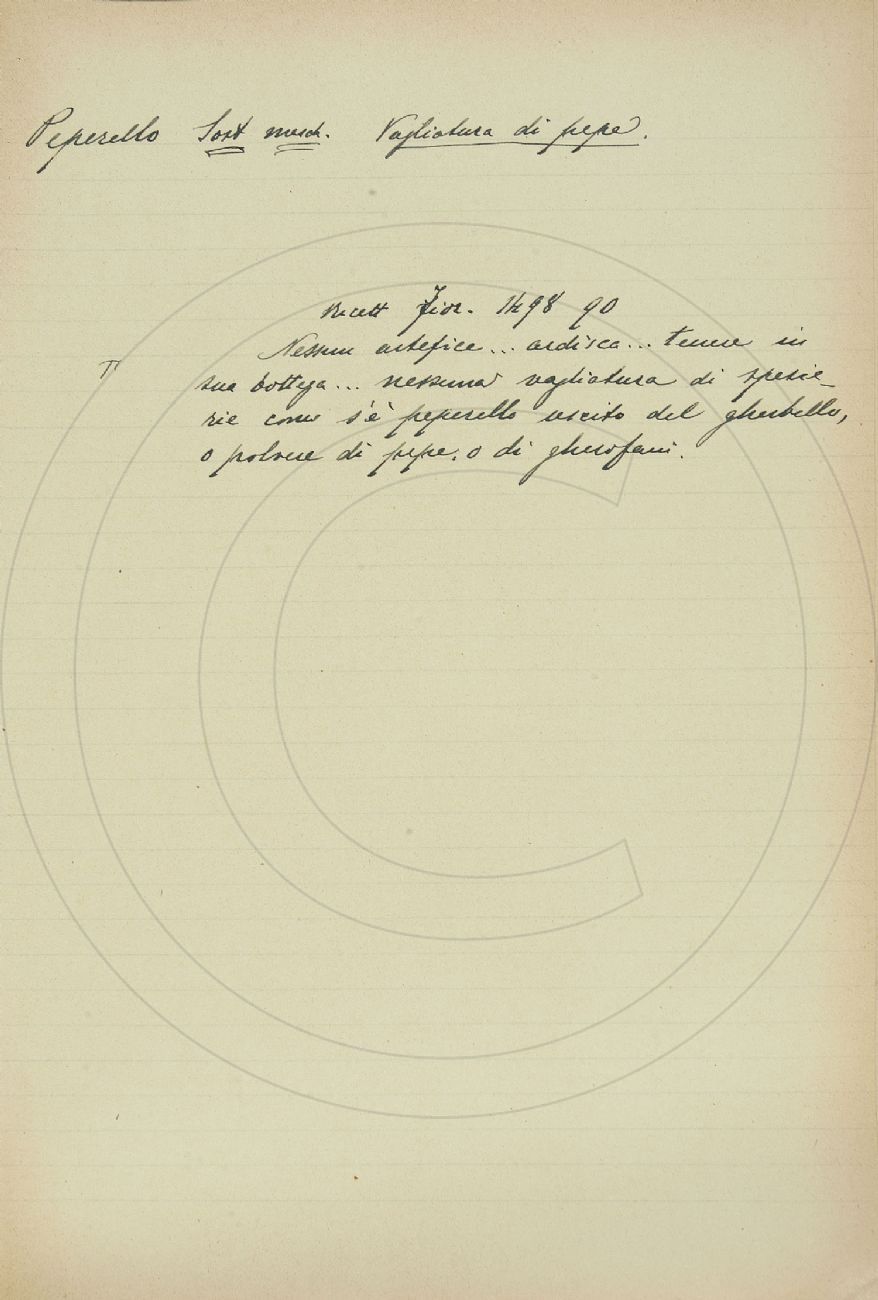 Peperello Sost masch. Vagliatura di pepe.
Ricett Fior. 1498 90
Nessun artefice... ardisca... tenere in
π
sua bottega... nessuna vagliatura di spezie-
rie come s'è peperello uscito del gherbello,
o polvere di pepe. o di gherofani.